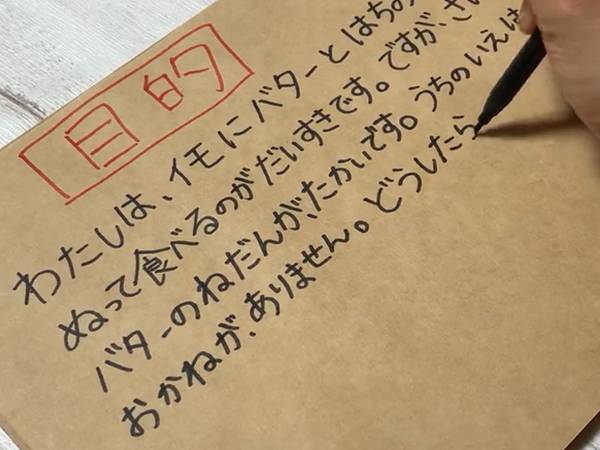 目的
わたしは、イモにバターとはちの
ぬって食べるのがだいすきです。ですが、さい
バターのねだんが、たかいです。うちのいえは
おかねが、ありません。どうしたら